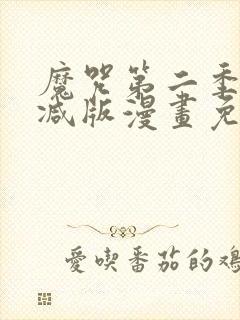 魔咒第二季
减版漫畫免
愛喫番茄的鳮